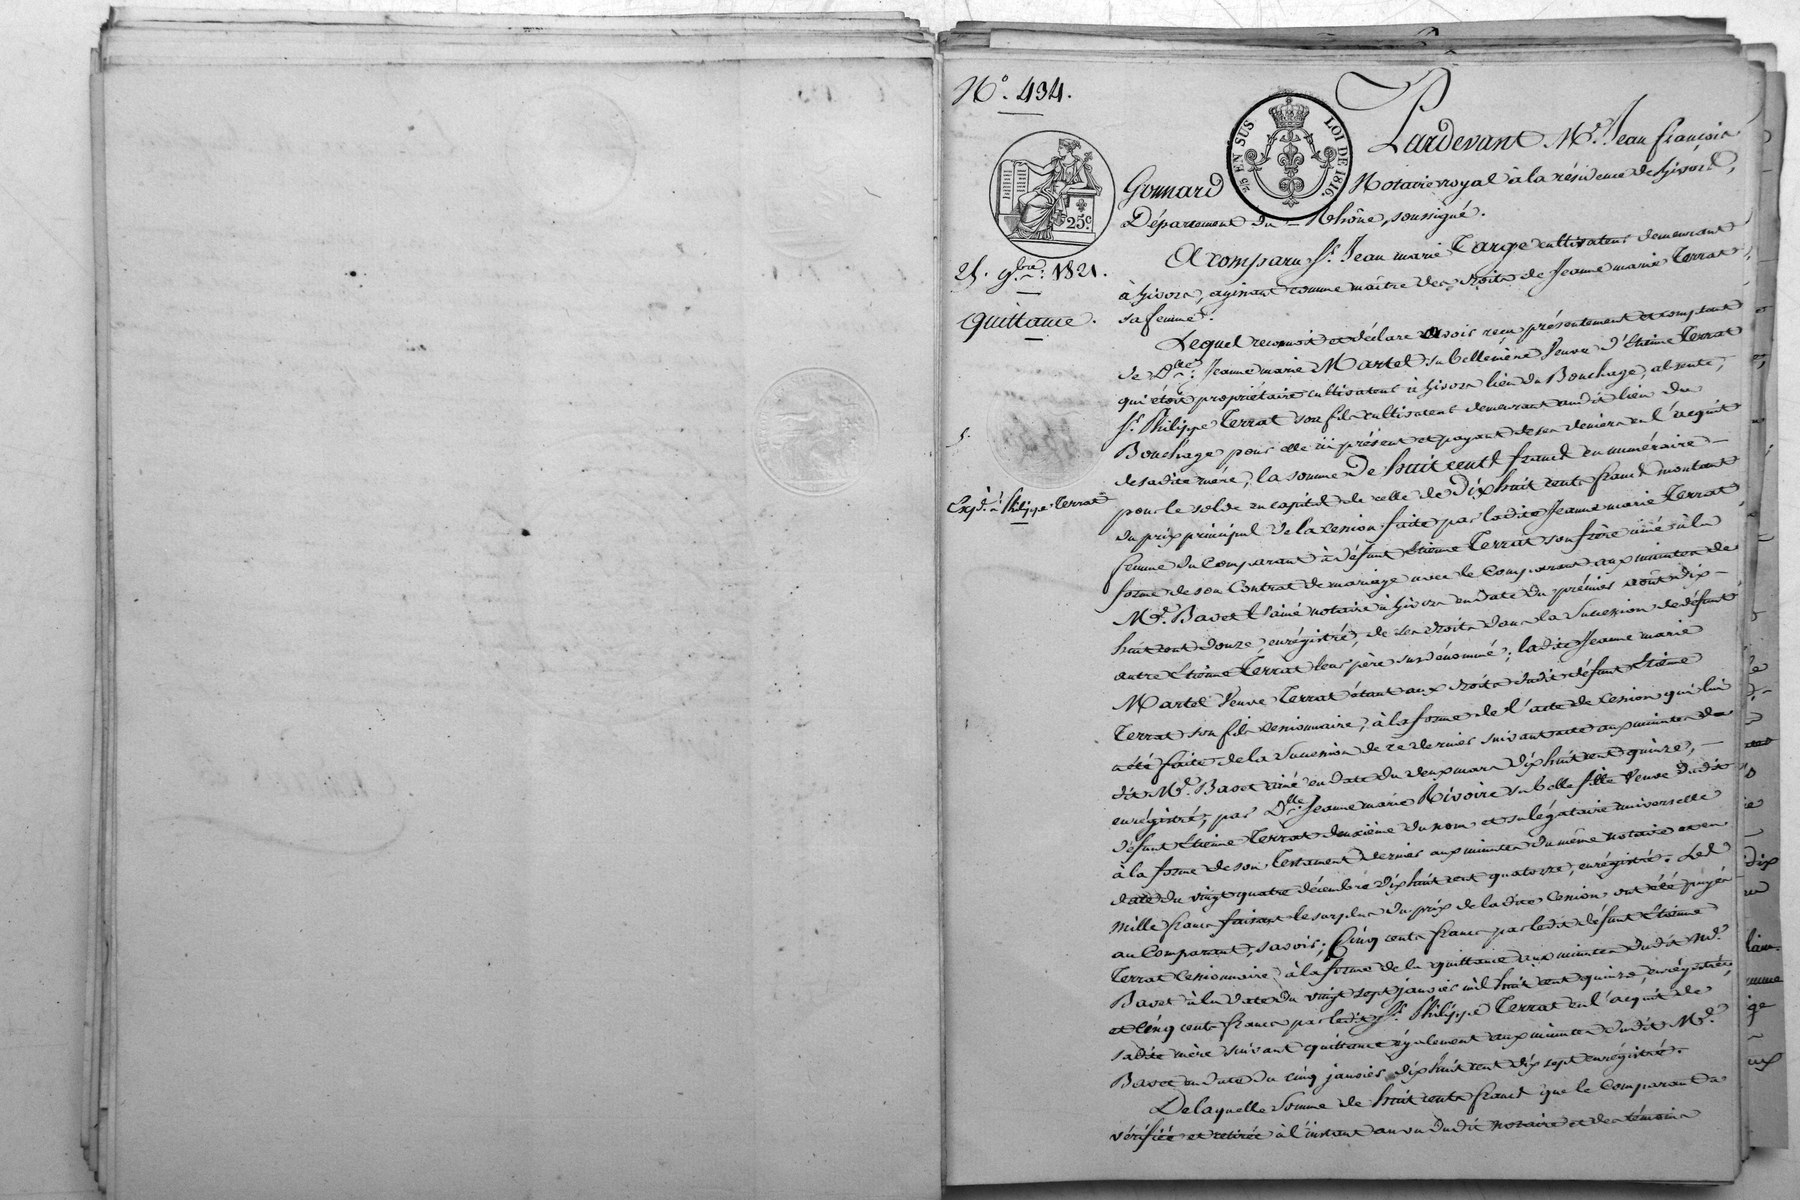 N.° 434.
25 EN SUS LOI DE 1816.
25c.
25. 9bre. 1821.
Quittance.
5.
Expd. à Philippe Terrat
Pardevant Me. Jean françois
Gonnard Notaire royal à la résidence de Givors,
Département du Rhône, soussigné.
A comparu Sr. Jean marie Targe cultivateur demeurant
à Givors, agissant comme maître des droits de Jeanne marie Terrat
sa femme.
Lequel reconnoit et déclare avoir reçu présentement et comptant
de Dlle. Jeanne marie Martel sa bellemère Veuve d'Etienne Terrat
qui étoit propriétaire cultivateur à Givors lieu du Bouchage, absente,
Sr. Philippe Terrat son fils cultivateur demeurant audit lieu du
Bouchage pour elle ici présent et payant de ses deniers en l'acquit
de sadite mère, la somme de huit cents francs en numéraire
pour le solde en capital de celle de Dix huit cents francs montant
du prix principal de la cession faite par ladite Jeanne marie Terrat
femme du Comparant à défunt Etienne Terrat son frère ainé à la
forme de son Contrat de mariage avec le Comparant aux minutes de
Me. Bavet l'ainé notaire à Givors en date du prémier août dix
huit cent douze, enrégistré, de ses droits dans la Succession de défunt
autre Etienne Terrat leur père susdénommé; ladite Jeanne marie
Martel Veuve Terrat étant aux droits dudit défunt Etienne
Terrat son fils Cessionnaire, à la forme de l'acte de Cession qui lui
a été faite de la Succession de ce dernier suivant acte aux minutes du
dit Me. Bavet ainé en date du deux mars dix huit cent quinze,
enrégistré, par Dlle. Jeanne marie Rivoire sa belle fille Veuve dudit
défunt Etienne Terrat deuxième du nom et sa légataire universelle
à la forme de son Testament dernier aux minutes du même notaire et en
date du vingt quatre décembre dix huit cent quatorze, enrégistré. Les
mille francs faisant le surplus du prix de ladite Cession ont été payés
au Comparant, savoir; Cinq cents francs par ledit défunt Etienne
Terrat Cessionnaire, à la forme de la quittance aux minutes dudit Me.
Bavet à la date du vingt sept janvier mil huit cent quinze, enrégistrée,
et Cinq cents francs par ledit Sr. Philippe Terrat en l'acquit de
sadite mère suivant quittance également aux minutes dudit Me.
Bavet en date du cinq janvier dix huit cent dix sept enrégistré.
De laquelle Somme de huit cents francs que le Comparant a
vérifiée et retirée à l'instant au vu dudit notaire et des témoins